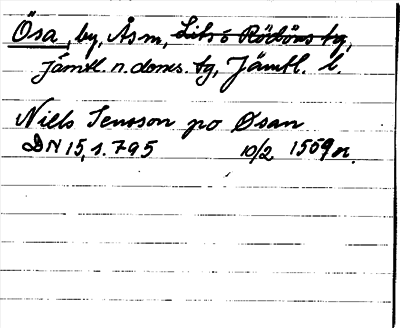 Ösa, by, Åsm, Lits o Rödöns tg,
Jämtl. n. doms. tg, Jämtl. l.
Niels Jensson po Øsan
DN 15, s. 795 10/2 1559 n.